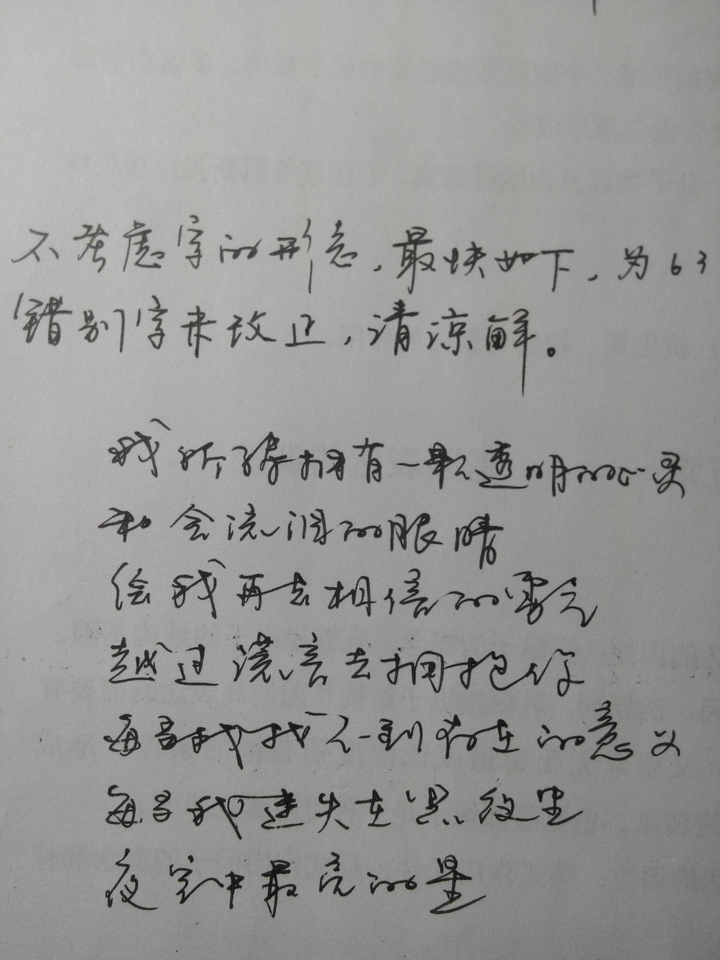 不考虑字的形态，最快如下，为63
错别字未改正，请凉解。
我祈祷拥有一颗透明的心灵
和会流泪的眼睛
给我再去相信的勇气
越过谎言去拥抱你
每当我找不到存在的意义
每当我迷失在黑夜里
夜空中最亮的星